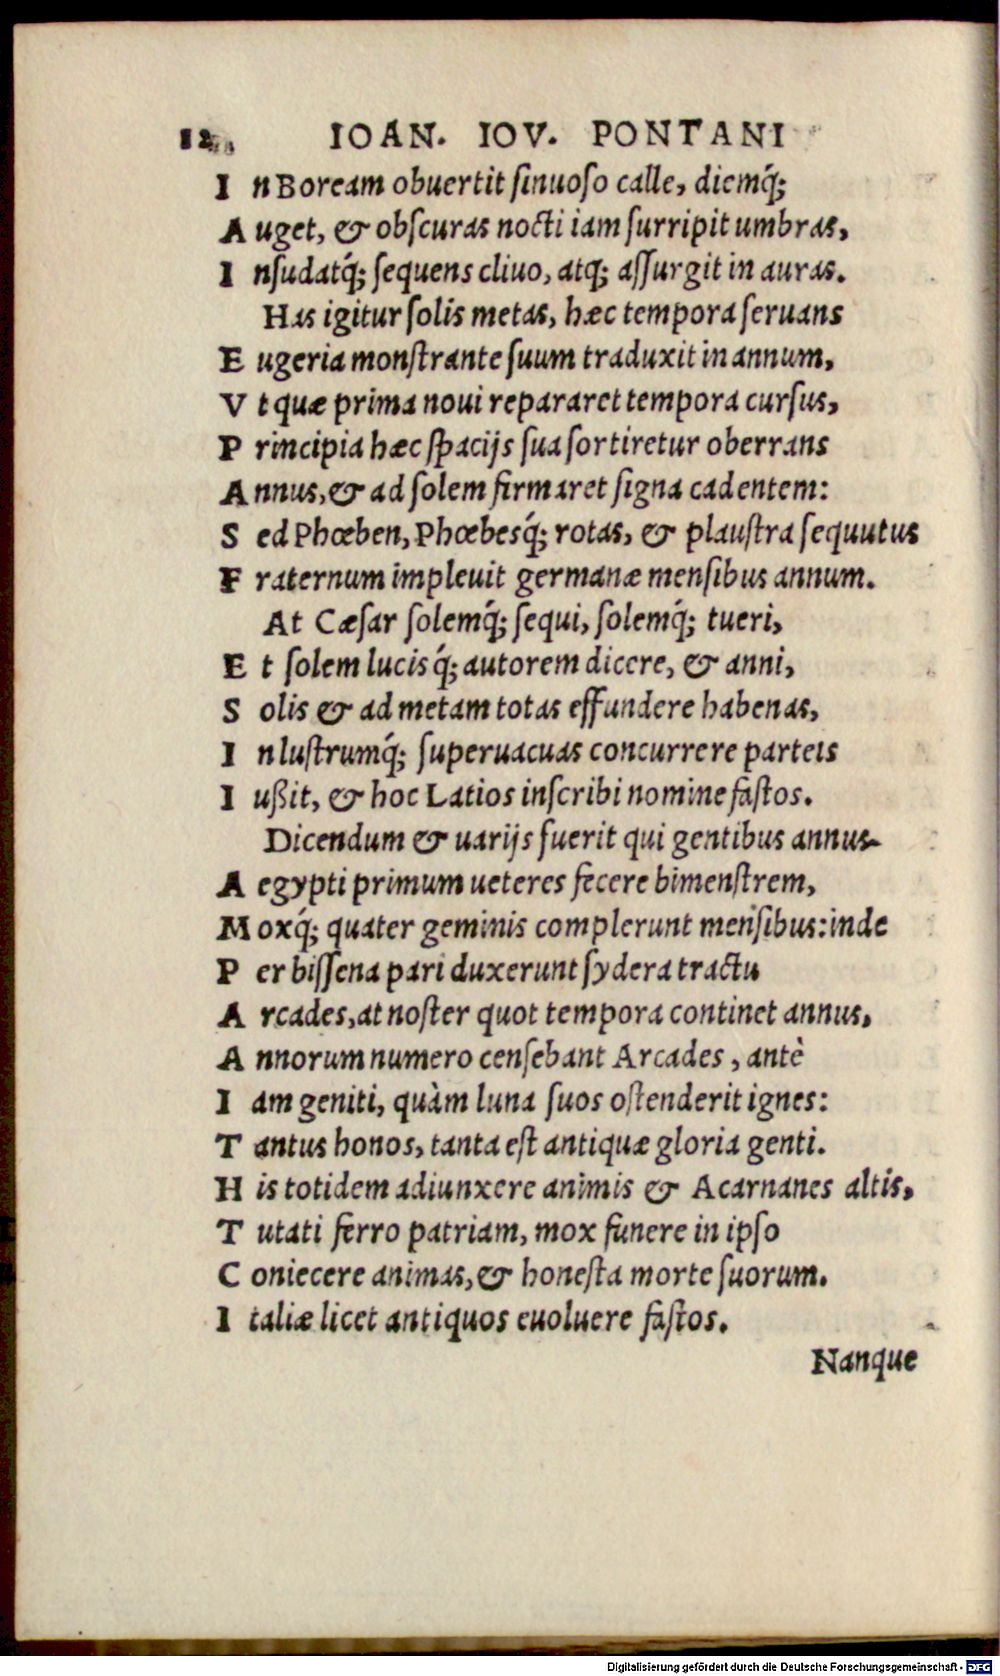 12 IOAN. IOV. PONTANI
I n Boream obuertit sinuoso calle, diemq́;
A uget, & obscuras nocti iam surripit umbras,
I nsudatq́; sequens cliuo, atq; assurgit in auras.
Has igitur solis metas, hæc tempora seruans
E ugeria monstrante suum traduxit in annum,
V t quæ prima noui repararet tempora cursus,
P rincipia hæc spacijs sua sortiretur oberrans
A nnus, & ad solem firmaret signa cadentem:
S ed Phœben, Phœbesq́; rotas, & plaustra sequutus
F raternum impleuit germanæ mensibus annum.
At Cæsar solemq́; sequi, solemq́; tueri,
E t solem lucisq́; autorem dicere, & anni,
S olis & ad metam totas effundere habenas,
I n lustrumq́; superuacuas concurrere parteis
I ußit, & hoc Latios inscribi nomine fastos.
Dicendum & uarijs fuerit qui gentibus annus.
A egypti primum ueteres fecere bimenstrem,
M oxq́; quater geminis complerunt mensibus: inde
P er bissena pari duxerunt sydera tractu
A rcades, at noster quot tempora continet annus,
A nnorum numero censebant Arcades, antè
I am geniti, quàm luna suos ostenderit ignes:
T antus honos, tanta est antiquæ gloria genti.
H is totidem adiunxere animis & Acarnanes altis,
T utati ferro patriam, mox funere in ipso
C oniecere animas, & honesta morte suorum.
I taliæ licet antiquos euoluere fastos.
Nanque
Digitalisierung gefördert durch die Deutsche Forschungsgemeinschaft - DFG